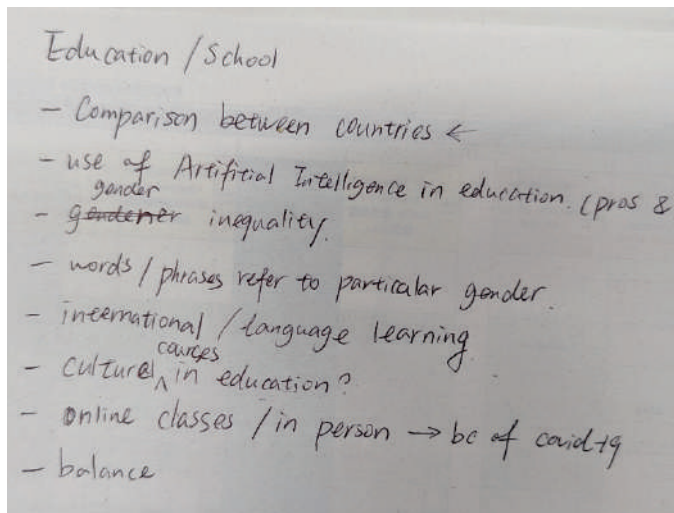 Education / School
- Comparison between countries ←
- use of Artifitial Intelligence in education. (pros &
gender
- gendener inequality.
- words / phrases refer to particular gender.
- international / language learning
cources
- culture ^ in education?
- online classes / in person → bc of covid-19
- balance